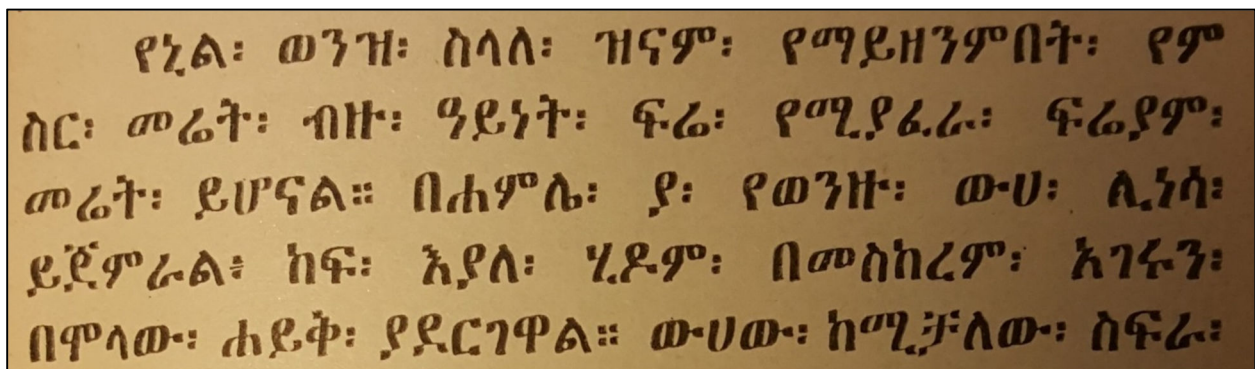 የኒል፡ ወንዝ፡ ስላለ፡ ዝናም፡ የማይዘንምበት፡ የም
ስር፡ መሬት፡ ብዙ፡ ዓይነት፡ ፍሬ፡ የሚያፈራ፡ ፍሬያም፡
መሬት፡ ይሆናል። በሐምሌ፡ ያ፡ የወንዙ፡ ውሀ፡ ሊነሳ፡
ይጀምራል፤ ከፍ፡ እያለ፡ ሂዶም፡ በመስከረም፡ አገሩን፡
በሞላው፡ ሐይቅ፡ ያደርገዋል። ውሀው፡ ከሚቻለው፡ ስፍራ፡